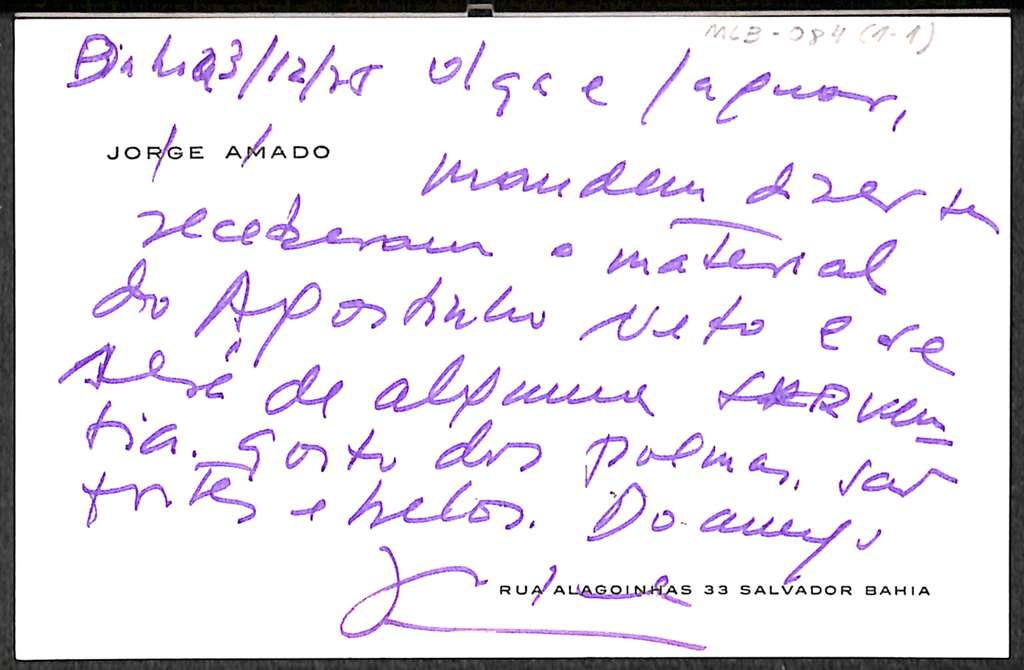 MLB-084 (1-1)
Bahia 23/12/75 Olga e Jaguar,
JORGE AMADO
mandem dizer se
receberam o material
do Agostinho Neto e se
será de alguma serven
tia. Gosto dos poemas, são
fortes e belos. Do amigo
Jorge
RUA ALAGOINHAS 33 SALVADOR BAHIA